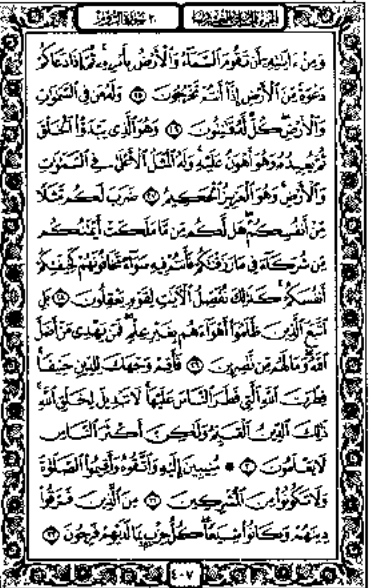 الجزء الحادي والعشرون
٣٠ سورة الروم
وَمِنْ ءَايَٰتِهِۦٓ أَن تَقُومَ ٱلسَّمَآءُ وَٱلْأَرْضُ بِأَمْرِهِۦ ثُمَّ إِذَا دَعَاكُمْ
دَعْوَةً مِّنَ ٱلْأَرْضِ إِذَآ أَنتُمْ تَخْرُجُونَ ٢٥ وَلَهُۥ مَن فِى ٱلسَّمَٰوَٰتِ
وَٱلْأَرْضِ كُلٌّ لَّهُۥ قَٰنِتُونَ ٢٦ وَهُوَ ٱلَّذِى يَبْدَؤُا۟ ٱلْخَلْقَ
ثُمَّ يُعِيدُهُۥ وَهُوَ أَهْوَنُ عَلَيْهِ وَلَهُ ٱلْمَثَلُ ٱلْأَعْلَىٰ فِى ٱلسَّمَٰوَٰتِ
وَٱلْأَرْضِ وَهُوَ ٱلْعَزِيزُ ٱلْحَكِيمُ ٢٧ ضَرَبَ لَكُم مَّثَلًا
مِّنْ أَنفُسِكُمْ هَل لَّكُم مِّن مَّا مَلَكَتْ أَيْمَٰنُكُم
مِّن شُرَكَآءَ فِى مَا رَزَقْنَٰكُمْ فَأَنتُمْ فِيهِ سَوَآءٌ تَخَافُونَهُمْ كَخِيفَتِكُمْ
أَنفُسَكُمْ كَذَٰلِكَ نُفَصِّلُ ٱلْءَايَٰتِ لِقَوْمٍ يَعْقِلُونَ ٢٨ بَلِ
ٱتَّبَعَ ٱلَّذِينَ ظَلَمُوٓا۟ أَهْوَآءَهُم بِغَيْرِ عِلْمٍ فَمَن يَهْدِى مَنْ أَضَلَّ
ٱللَّهُ وَمَا لَهُم مِّن نَّٰصِرِينَ ٢٩ فَأَقِمْ وَجْهَكَ لِلدِّينِ حَنِيفًا
فِطْرَتَ ٱللَّهِ ٱلَّتِى فَطَرَ ٱلنَّاسَ عَلَيْهَا لَا تَبْدِيلَ لِخَلْقِ ٱللَّهِ
ذَٰلِكَ ٱلدِّينُ ٱلْقَيِّمُ وَلَٰكِنَّ أَكْثَرَ ٱلنَّاسِ
لَا يَعْلَمُونَ ٣٠ ۞ مُنِيبِينَ إِلَيْهِ وَٱتَّقُوهُ وَأَقِيمُوا۟ ٱلصَّلَوٰةَ
وَلَا تَكُونُوا۟ مِنَ ٱلْمُشْرِكِينَ ٣١ مِنَ ٱلَّذِينَ فَرَّقُوا۟
دِينَهُمْ وَكَانُوا۟ شِيَعًا كُلُّ حِزْبٍۭ بِمَا لَدَيْهِمْ فَرِحُونَ ٣٢
٤٠٧